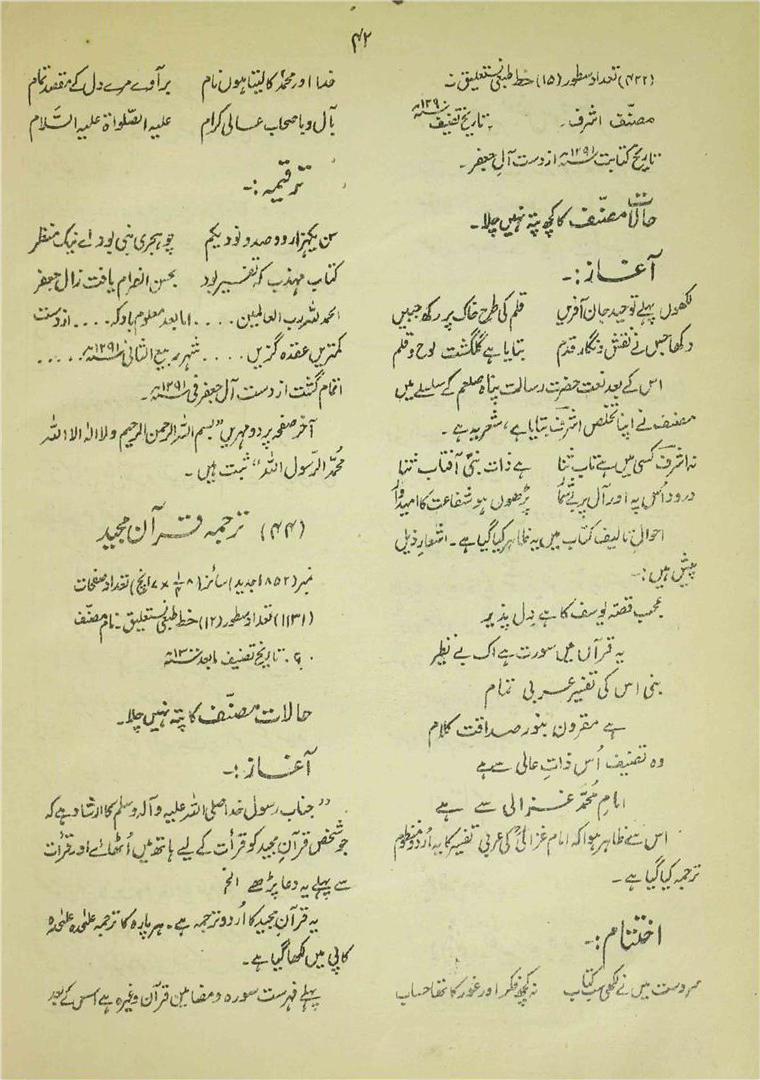 ۴۲
(۴۲۲) تعداد سطور (۱۵) خط طبعی نستعلیق نہ
مصنّف اشرف۔ ۔ تاریخ تصنیف ۱۲۹۰ھ
تاریخ کتابت ۱۲۹۱ھ از دست آل جعفر۔
حالات مصنّف کا کچھ پتہ نہیں چلا۔
آغاز:-
لکھوں پہلے توحید جان آفریں قلم کی طرح خاک پر رکھ جبیں
رکھا جس نے نقش و نگار قدم بتایا ہے گلگشت لوح و قلم
اس کے بعد نعت حضرت رسالت پناہ صلعم کے سلسلے میں
مصنف نے اپنا تخلص اشرف بتایا ہے، شعر یہ ہے۔
نہ اشرف کسی میں ہے تاب ثنا ہے ذات نبیؐ آفتاب ثنا
درود اُس پہ اور آل پر بے شمار پڑھوں ہو شفاعت کا امیدوار
احوال تالیف کتاب میں یہ ظاہر کیا گیا ہے۔ اشعار ذیل
پیش ہیں:-
عجب قصّہ یوسف کا ہے دل پذیر
یہ قرآں میں سورت ہے اک بے نظیر
بنی اس کی تفسیر عربی تمام
ہے مقرون بنور صداقت کلام
وہ تصنیف اُس ذات عالی سے ہے
امام محمّد غزالی سے ہے
اس سے ظاہر ہوا کہ امام غزالیؒ کی عربی تفسیر کا یہ اُردو منظوم
ترجمہ کیا گیا ہے۔
اختتام:-
سر دست میں نے لکھی سب کتاب نہ کچھ فکر اور غور کا تھا حساب
خدا اور محمّدؐ کا لیتا ہوں نام بر آوے مرے دل کے مقصد تمام
بآل و با صحاب عالی کرام علیہ الصّلواۃ علیہ السّلام
ترقیمہ:-
سن یکہزار و دو صد و نود و یکم چو ہجری نبی بود اے نیک منظر
کتاب مہذب کہ تفسیر بود بحسن انصرام یافت زال جعفر
الحمد للہ رب العالمین .... اما بعد معلوم باد کہ .... از دست
کمترین عقدہ گزیں .... شہر ربیع الثانی ۱۲۹۱ھ .....
اتمام گشت از دست آل جعفر فی ۱۲۹۱ھ۔
آخر صفحہ پر دو مہریں "بسم اللہ الرحمن الرحیم و لا الہ الا اللہ
محمّد الرّسول اللہ" ثبت ہیں۔
(۴۴) ترجمہ قرآن مجید
نمبر (۸۵۲ جدید) سائز (۸¼ × ۷ انچ) تعداد صفحات
(۱۱۳۱) تعداد سطور (۱۲) خط طبعی نستعلیق۔ نام مصنّف
۔ ؟۔ تاریخ تصنیف مابعد ۱۳۰۰ھ
حالات مصنّف کا پتہ نہیں چلا۔
آغاز:-
"جناب رسول خدا صلی اللہ علیہ و آلہ وسلم کا ارشاد ہے کہ
جو شخص قرآن مجید کو قرأت کے لیے ہاتھ میں اُٹھائے اور قرأت
سے پہلے یہ دعا پڑھے الخ
یہ قرآن مجید کا اُردو ترجمہ ہے۔ ہر پارہ کا ترجمہ علیٰحدہ علیٰحدہ
کاپی میں لکھا گیا ہے۔
پہلے فہرست سورہ و مضامین قرآن وغیرہ ہے اس کے بعد